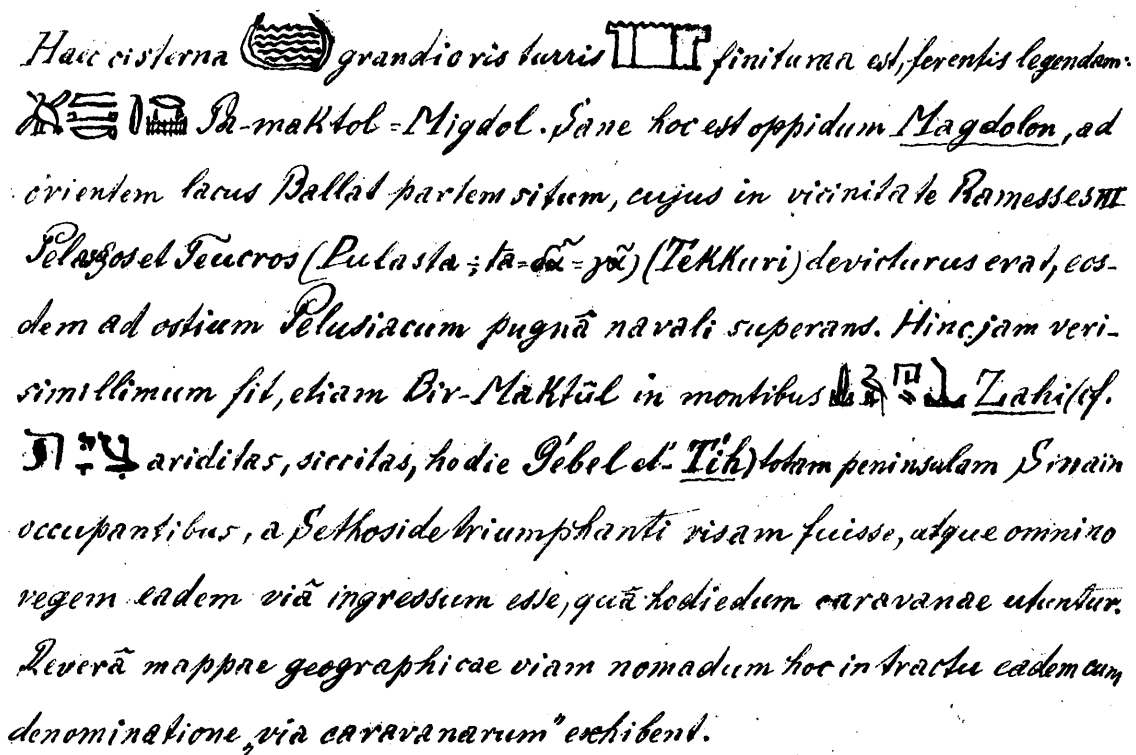 Haec cisterna grandioris turris finituma est, ferentis legendam:
Pa-maktol = Migdol. Sane hoc est oppidum Magdolon, ad
orientem lacus Ballat partem situm, cujus in vicinitate Ramesses III
Pelasgos et Teucros (Pulasta ÷ ta = γᾶ) (Tekkuri) devicturus erat, eos-
dem ad ostium Pelusiacum pugnâ navali superans. Hinc jam veri-
simillimum fit, etiam Bir-Maktûl in montibus Zahi (cf.
ariditas, siccitas, hodie Gébel et-Tîh) totam peninsulam Sinain
occupantibus, a Sethoside triumphanti visam fuisse, atque omnino
regem eadem viâ ingressum esse, quâ hodiedum caravanae utuntur.
Reverâ mappae geographicae viam nomadum hoc in tractu eadem cum
denominatione „via caravanarum" exhibent.